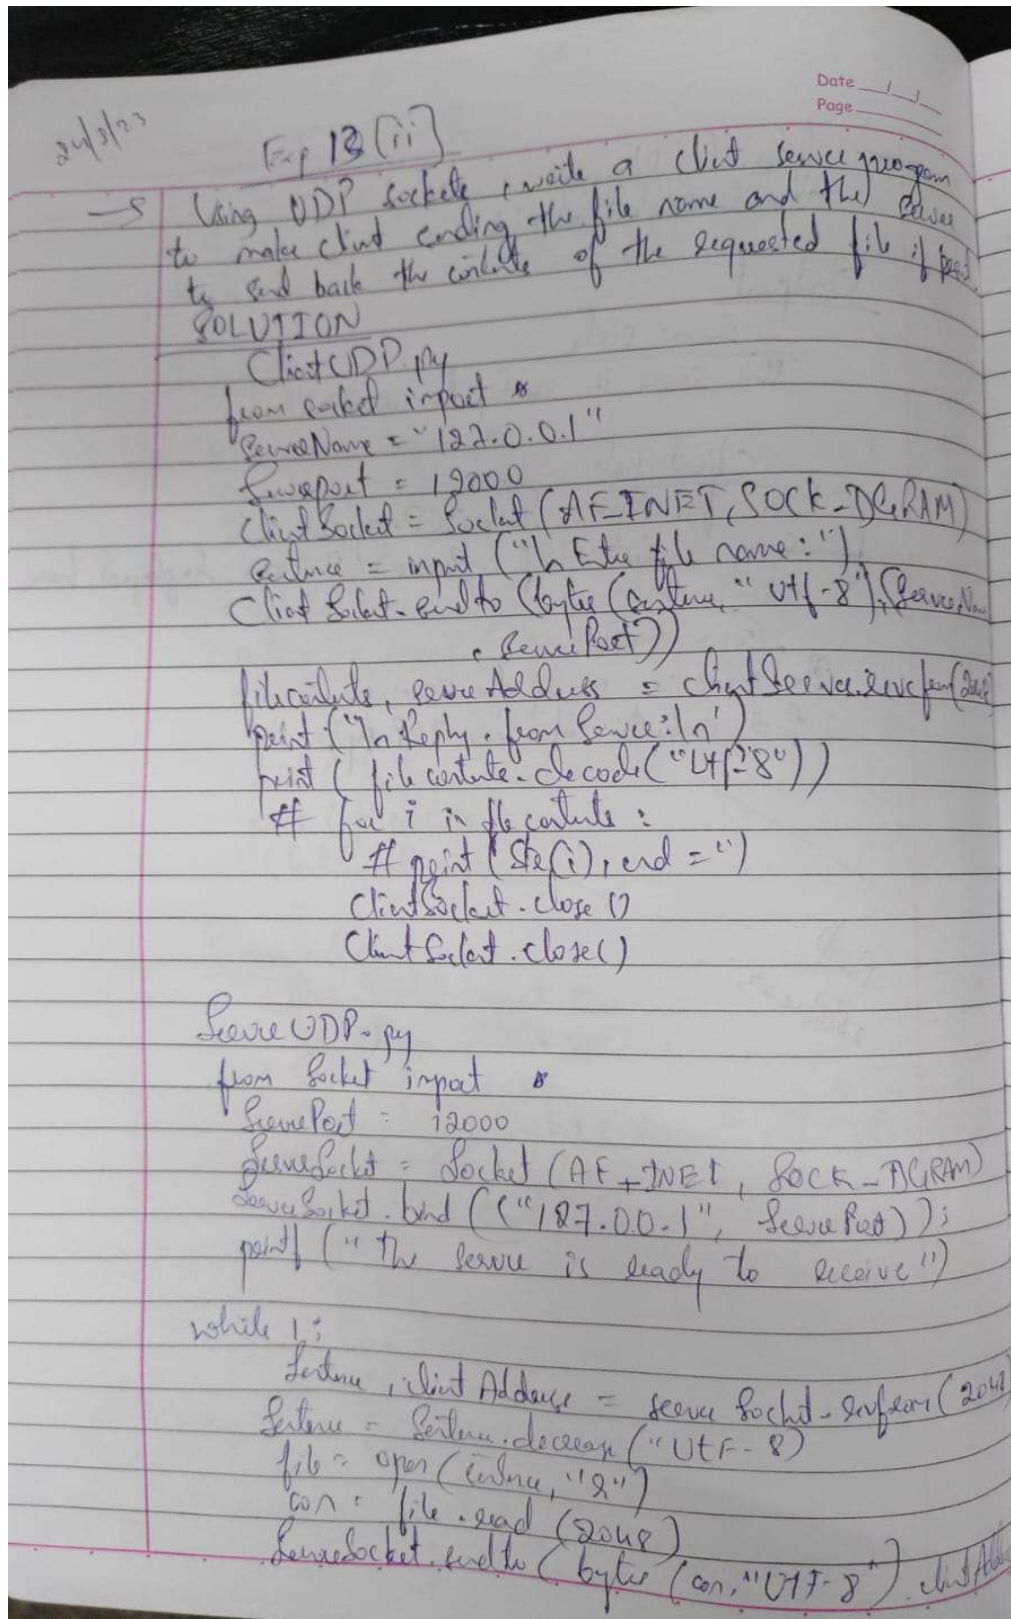 Date __/__/__
Page
24/3/23
Exp 13 (ii)
→ Using UDP sockets, write a client server program
to make client sending the file name and the server
to send back the contents of the requested file if
SOLUTION
ClientUDP.py
from socket import *
ServerName = "127.0.0.1"
Serverport = 12000
ClientSocket = Socket (AF_INET, SOCK_DGRAM)
Sentence = input ("\n Enter file name: ")
Client Socket.sendto (bytes (sentence, "utf-8"), (ServerName
, ServerPort))
filecontents, serverAddress = clientServer.recvfrom(2048
print ("\n Reply from Server:\n')
print ( filecontents.decode("utf-8"))
# for i in filecontents :
# print (Str(i), end = '')
ClientSocket.close ()
ClientSocket.close()
ServerUDP.py
from Socket import *
ServerPort = 12000
ServerSocket = Socket (AF_INET, SOCK_DGRAM)
ServerSocket.bind (("127.0.0.1", ServerPort));
print ("The server is ready to receive")
while 1:
Sentence, client Address = server Socket.recvfrom(2048
Sentence = Sentence. ("UTF-8)
file = open (sentence, "r")
con = file.read (2048)
ServerSocket.sendto (bytes (con, "UTF-8")